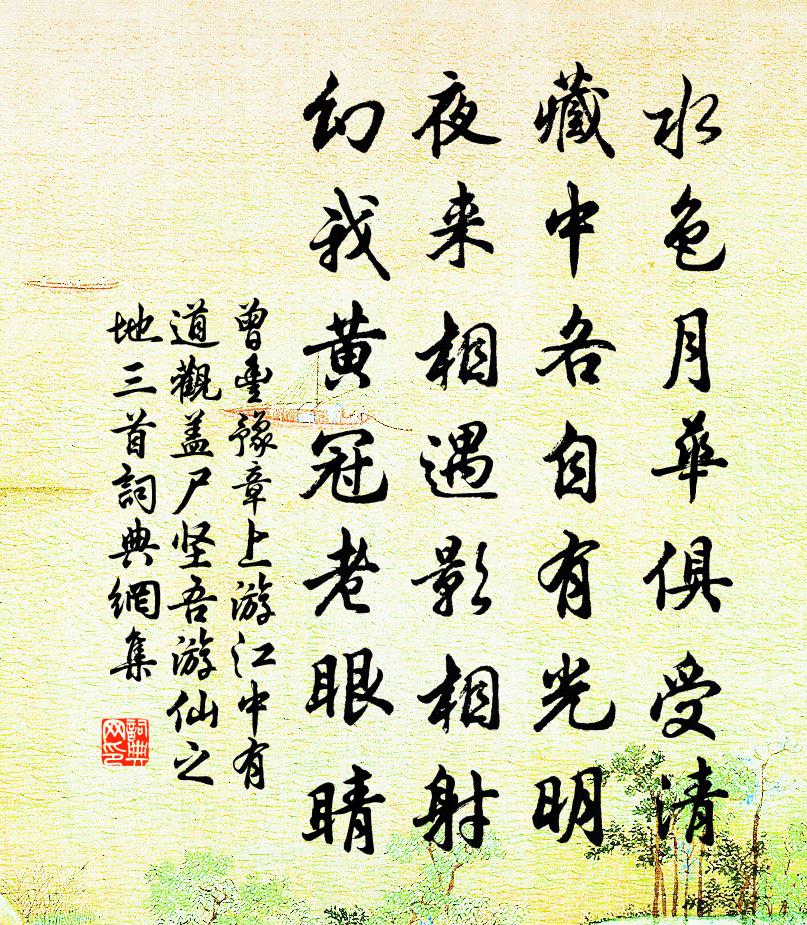 水色月華俱受清
藏中各自有光明
夜来相遇影相射
幻我黄冠老眼睛
曾豊豫章上游江中有
道觀盖尸坚吾游仙之
地三首詞典網集
詞典网印